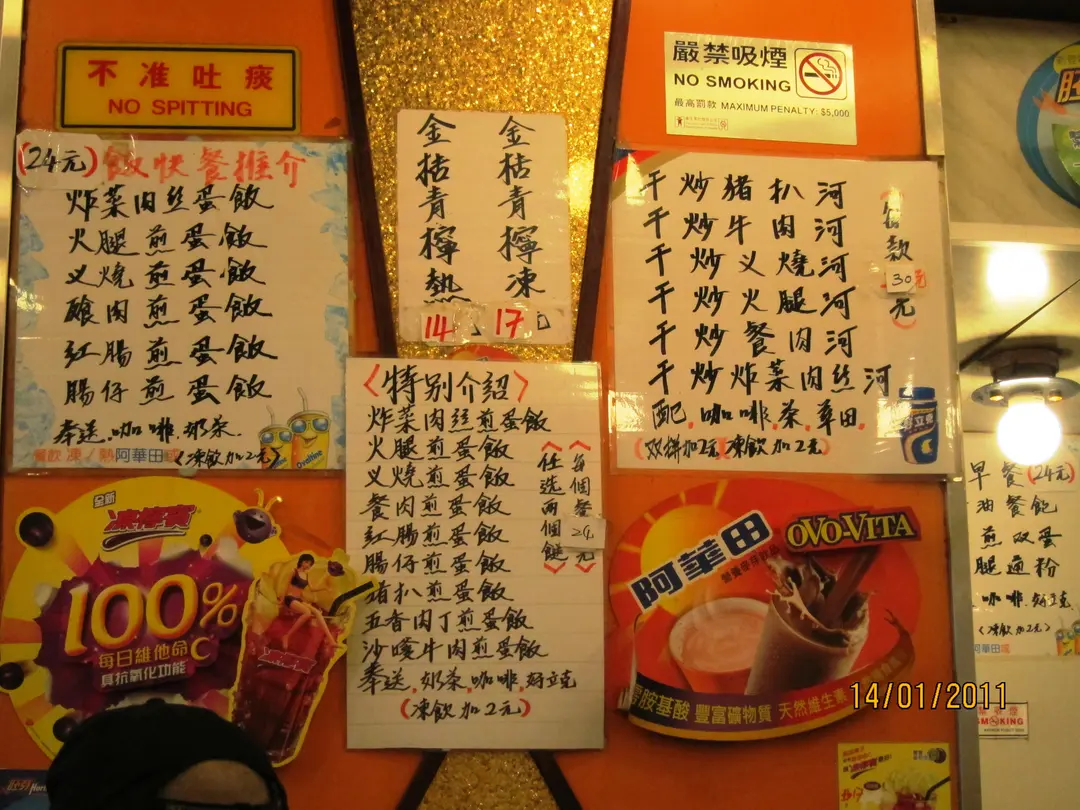 不准吐痰
NO SPITTING
嚴禁吸煙
NO SMOKING
最高罰款 MAXIMUM PENALTY: $5,000
(24元)飯快餐推介
炸菜肉丝蛋飯
火腿煎蛋飯
义燒煎蛋飯
餐肉煎蛋飯
紅腸煎蛋飯
腸仔煎蛋飯
奉送.咖啡.奶茶.
餐飲凍/熱阿華田或
(凍飲加2元)
Ovaltine
金桔青檸熱
14
金桔青檸凍
17
干炒猪扒河
干炒牛肉河
干炒义燒河
干炒火腿河
干炒餐肉河
干炒炸菜肉丝河
配.咖啡.茶.華田.
(双拼加2元)(凍飲加2元)
每款
30元
<特别介紹>
炸菜肉丝煎蛋飯
火腿煎蛋飯
义燒煎蛋飯
餐肉煎蛋飯
紅腸煎蛋飯
腸仔煎蛋飯
猪扒煎蛋飯
五香肉丁煎蛋飯
沙嗲牛肉煎蛋飯
奉送.奶茶.咖啡.好立克
(凍飲加2元)
每個餐24元
任选兩個餸
全新
100%
每日維他命C
具抗氧化功能
阿華田
OVO-VITA
胺基酸 豐富礦物質 天然維生素
早餐(24元)
油餐飽
煎双蛋
腿通粉
咖啡.好立克
(凍飲加2元)
阿華田或
SMOKING
14/01/2011